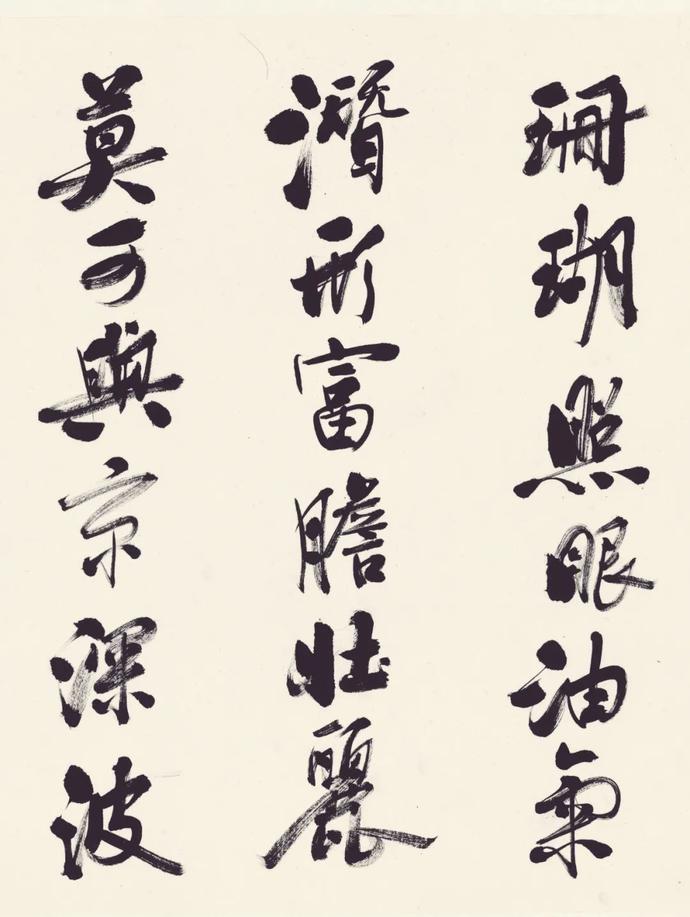 珊瑚照眼油氣
潛形富膽壯麗
莫可與京深波